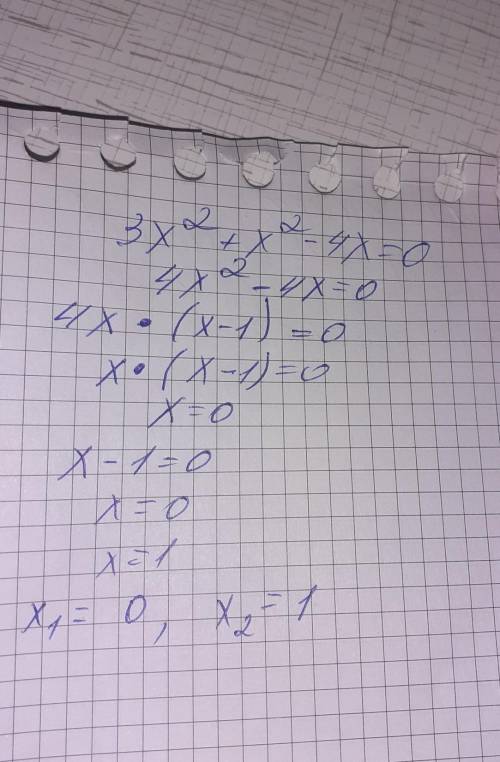 3x² + x² - 4x = 0
4x² - 4x = 0
4x • (x - 1) = 0
x • (x - 1) = 0
x = 0
x - 1 = 0
x = 0
x = 1
x₁ = 0, x₂ = 1